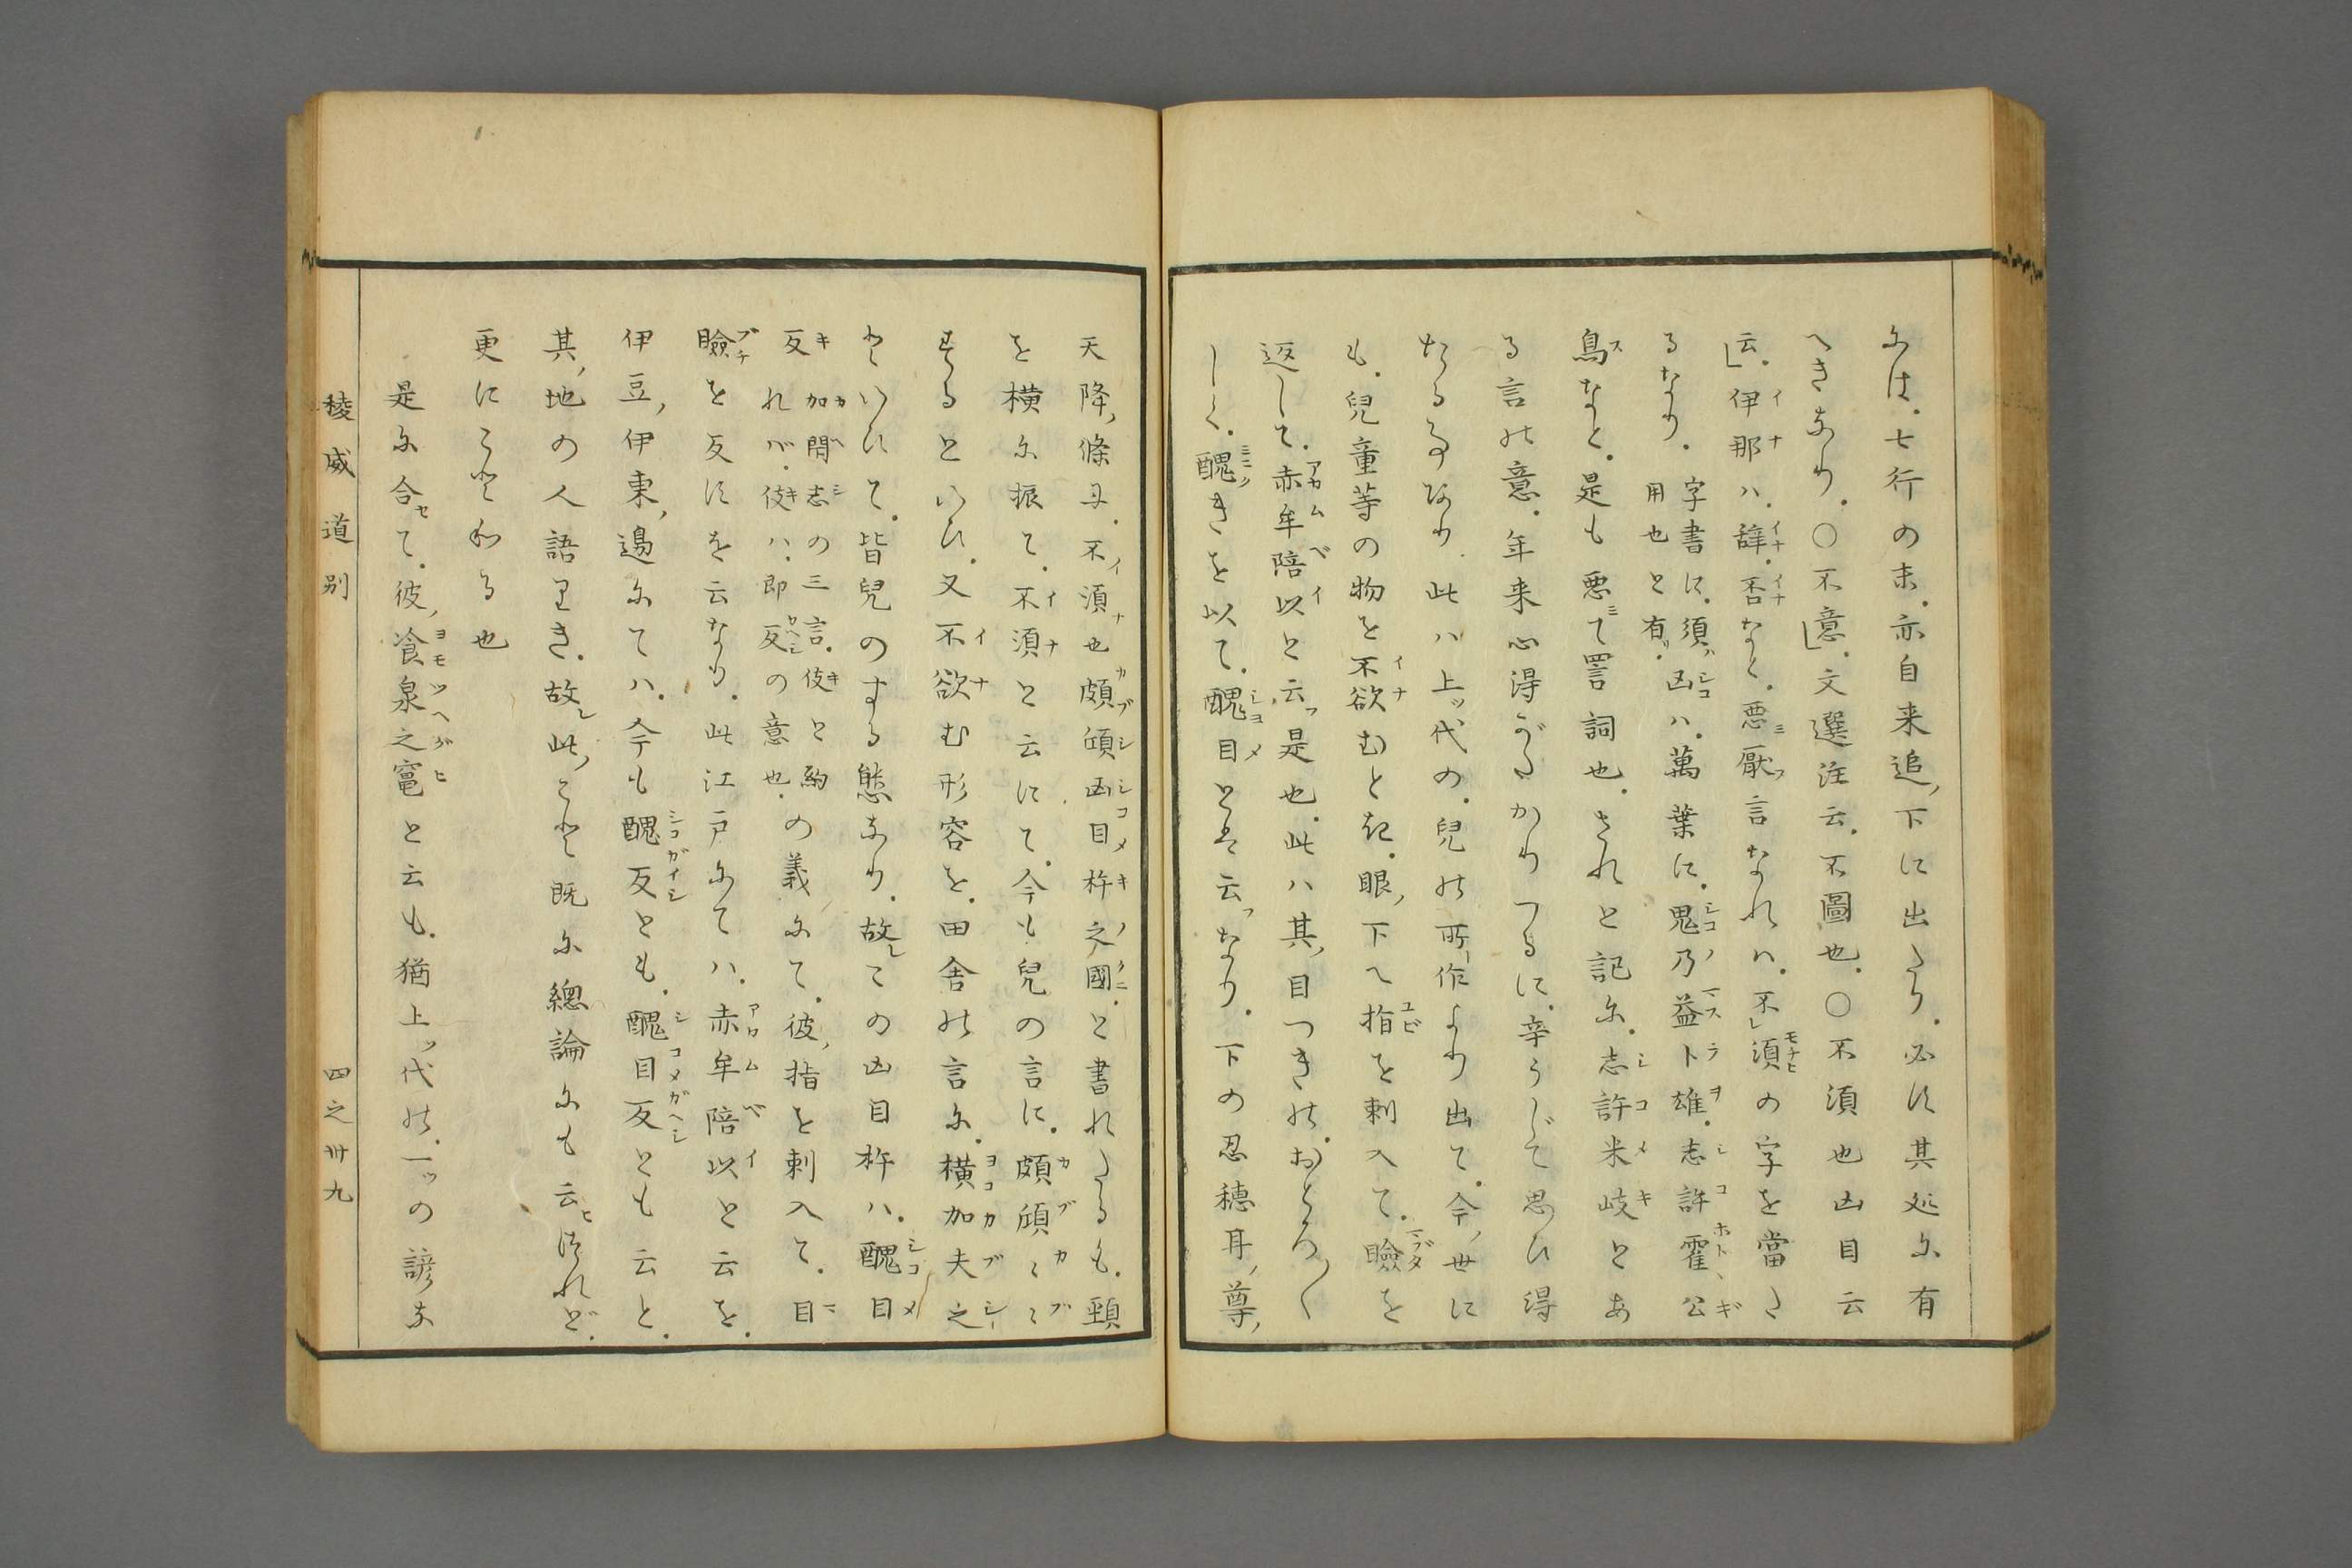 には。七行の末。亦自来追下に出たり。必ず其処に有
へきなり。〇不意。文選注云。不圖也。〇不須也凶目云
云。伊那ハ。辞。否など。悪厭言なれハ。不須の字を當た
るなり。字書に。須ハ用也と有。凶ハ。萬葉に。鬼乃益卜雄。志許霍公
鳥など。是も悪て詈詞也。されど記に。志許米岐とあ
る言の意。年来心得がたかりつるに。辛うじて思ひ得
たる事あり。此ハ上ッ代の。兒の所作より出て。今世に
も。兒童等の物を不欲むとき。眼下へ指を刺入て。瞼を
返して。赤牟陪以と云是也。此ハ其目つきの。おどろ〱
しく。醜きを以て。醜目とは云なり。下の忍穂耳尊
天降條に。不須也頗傾凶目杵之國。と書れたるも。頸
を横に振て。不須と云にて。今も兒の言に。頗傾ミミ
するといひ。又不欲む形容を。田舎の言に。横加夫之
といひて。皆兒のする態なり。故この凶目杵ハ。醜目
反加閇志の三言。伎と約れバ。伎ハ。即反の意也。の義にて。彼指を刺入て。目
瞼を反すを云なり。此江戸にてハ。赤牟陪以と云を。
伊豆伊東邊にてハ。今も醜反とも。醜目反とも云と。
其地の人語りき。故此こと既に總論にも云つれど。
更にことわる也
是に合て。彼飡泉之竈と云も。猶上ッ代の。一ッの諺な
稜威道別
四之卅九